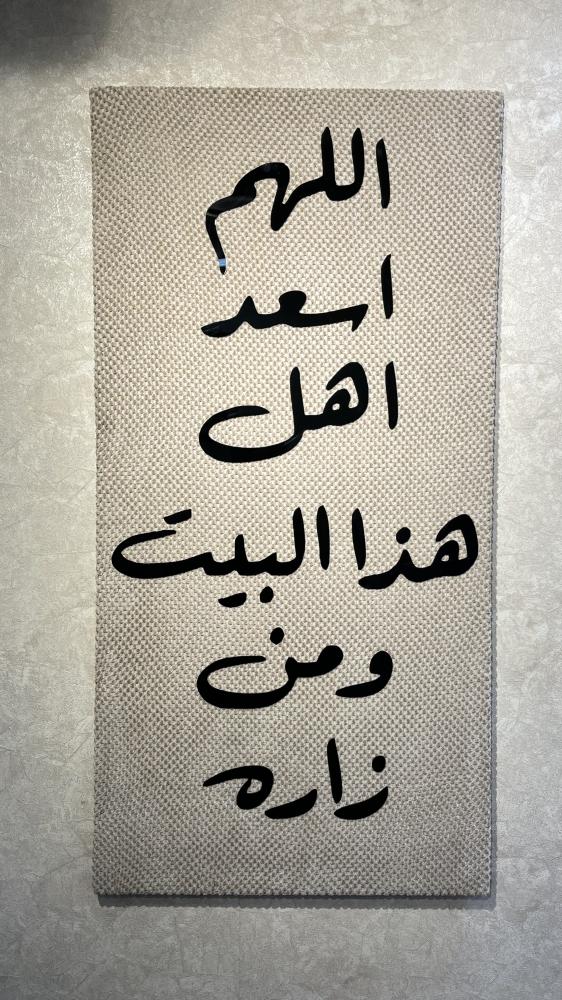 اللهم
اسعد
اهل
هذا البيت
ومن
زاره